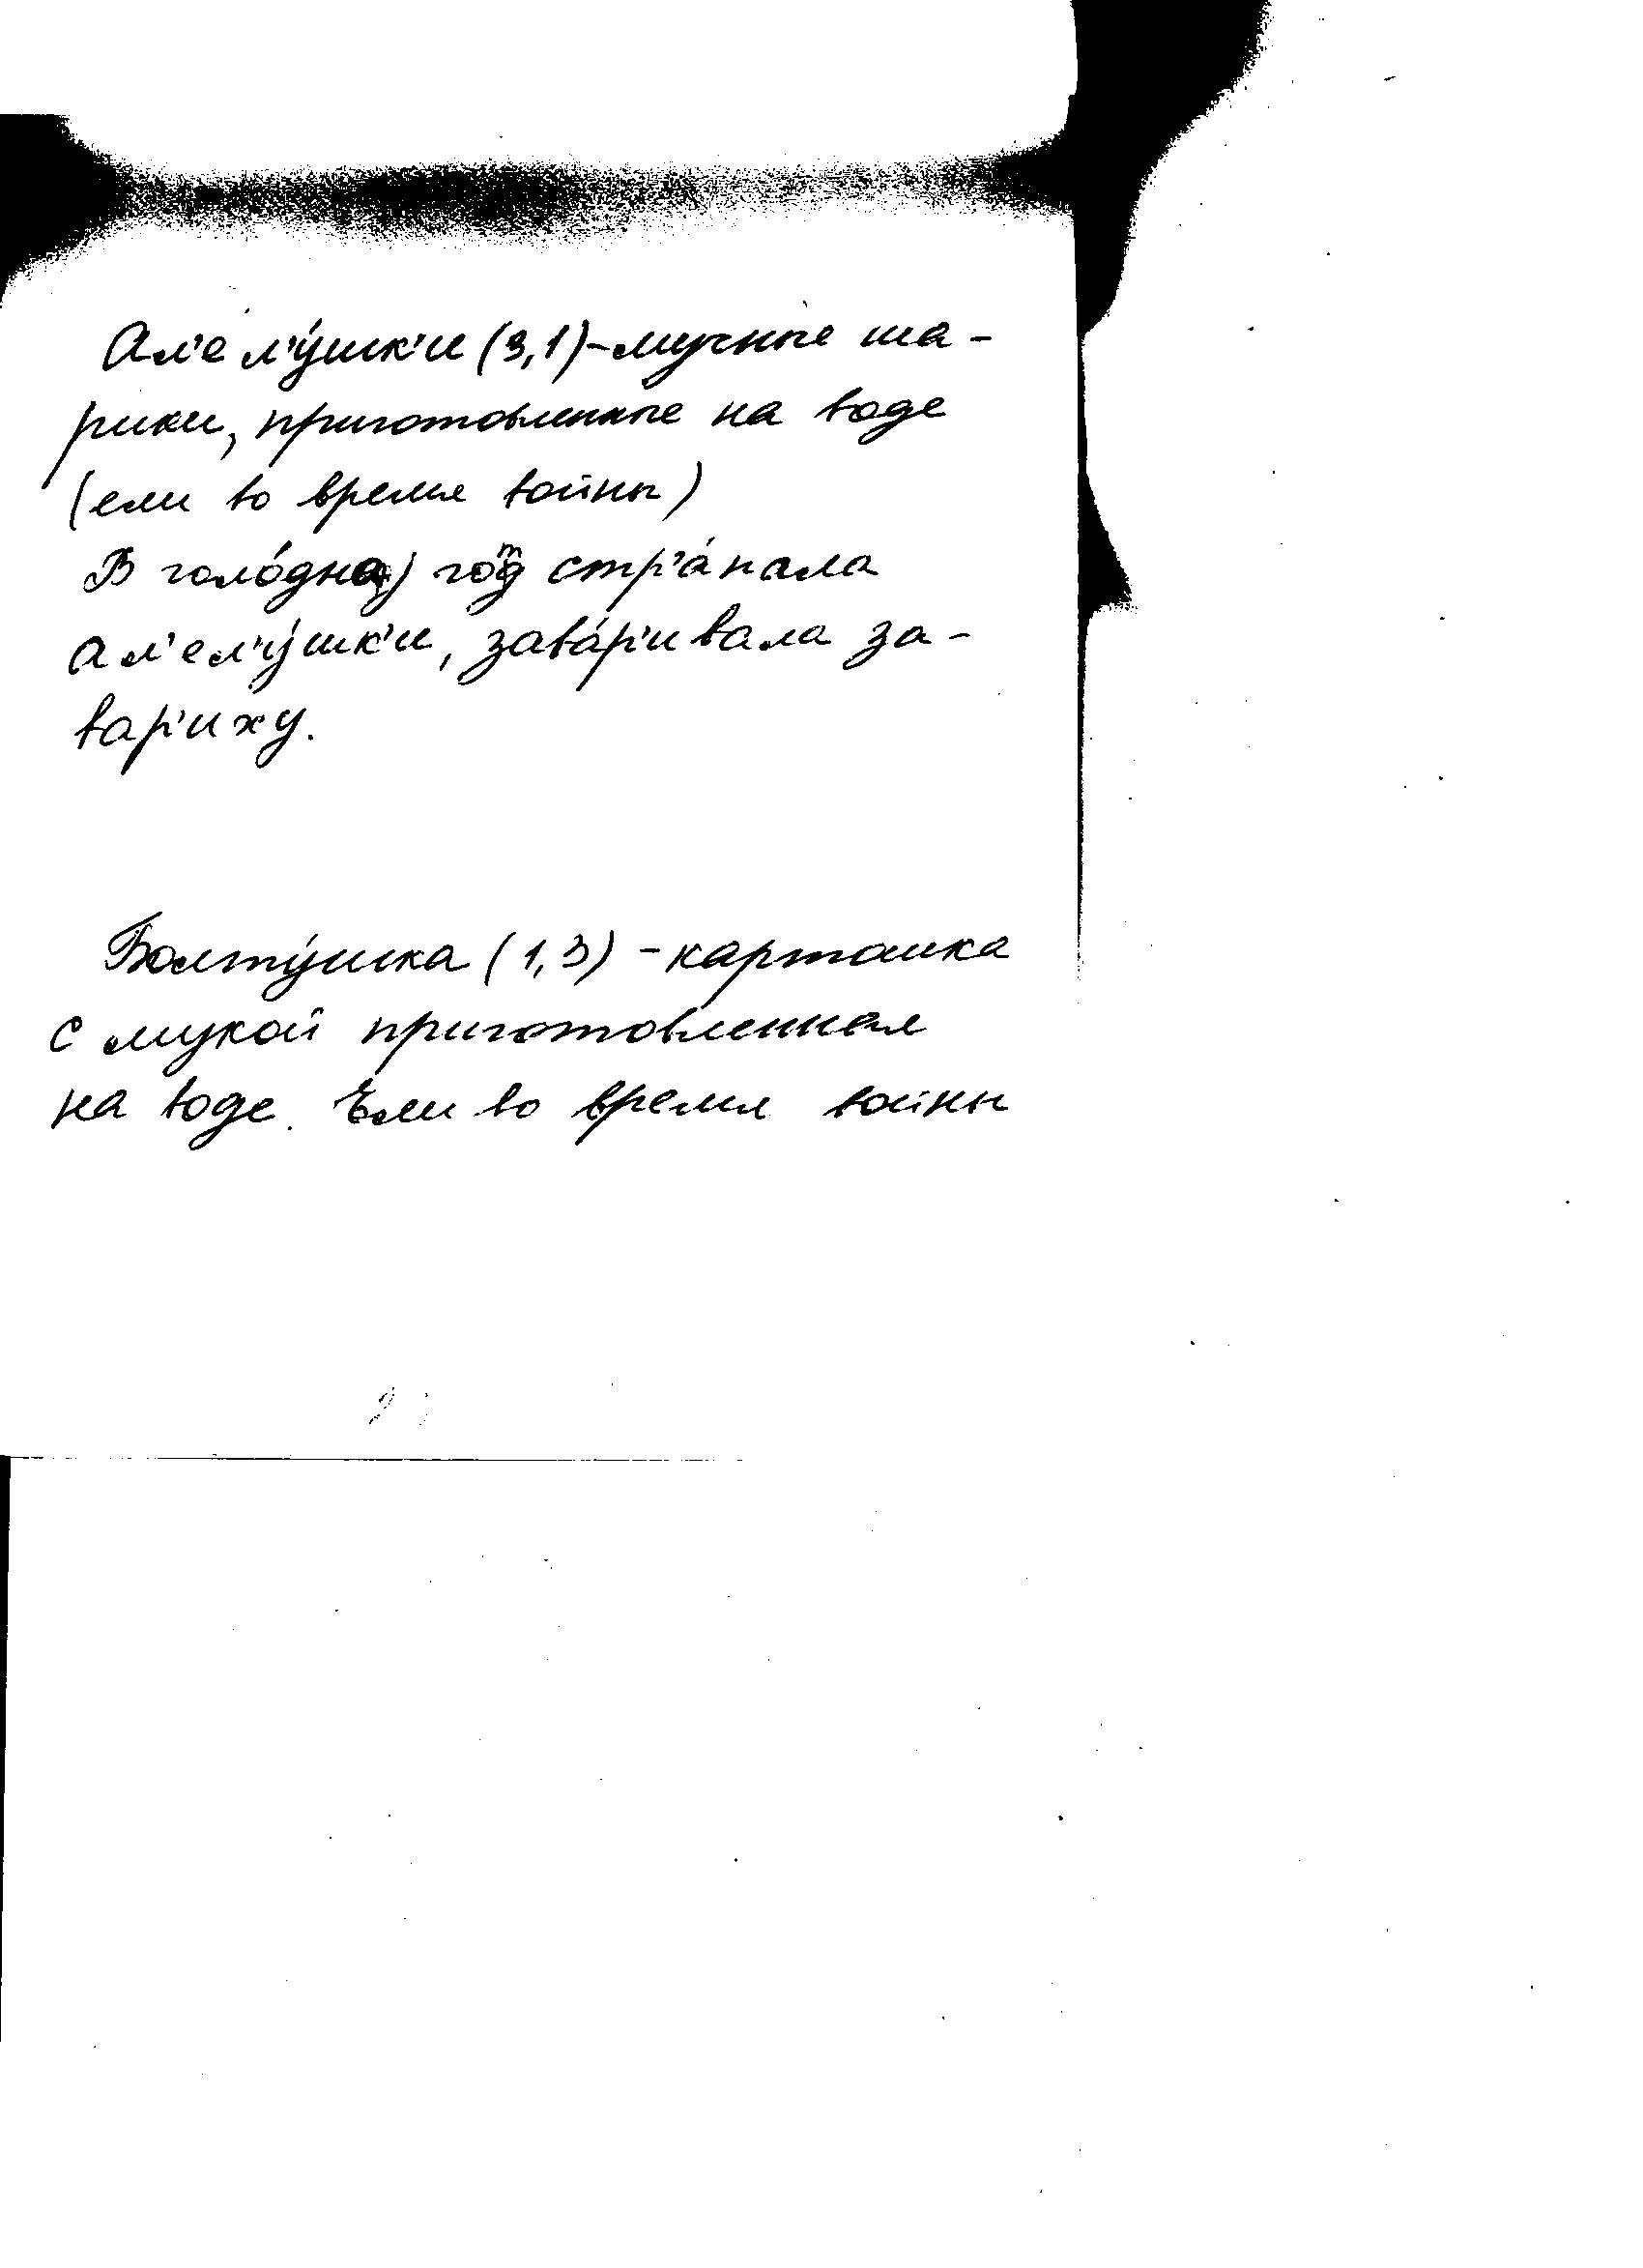 Ал'ел'у́шк'и (3,1) – мучные ша-
рики, приготовленные на воде
(ели во время войны)
В голо́днај го́д стр'а́пала
ал'ел'у́шк'и, зава́р'ивала за-
вар'иху.
Болту́шка (1,3) – картошка
с мукой приготовленная
на воде. Ели во время войны